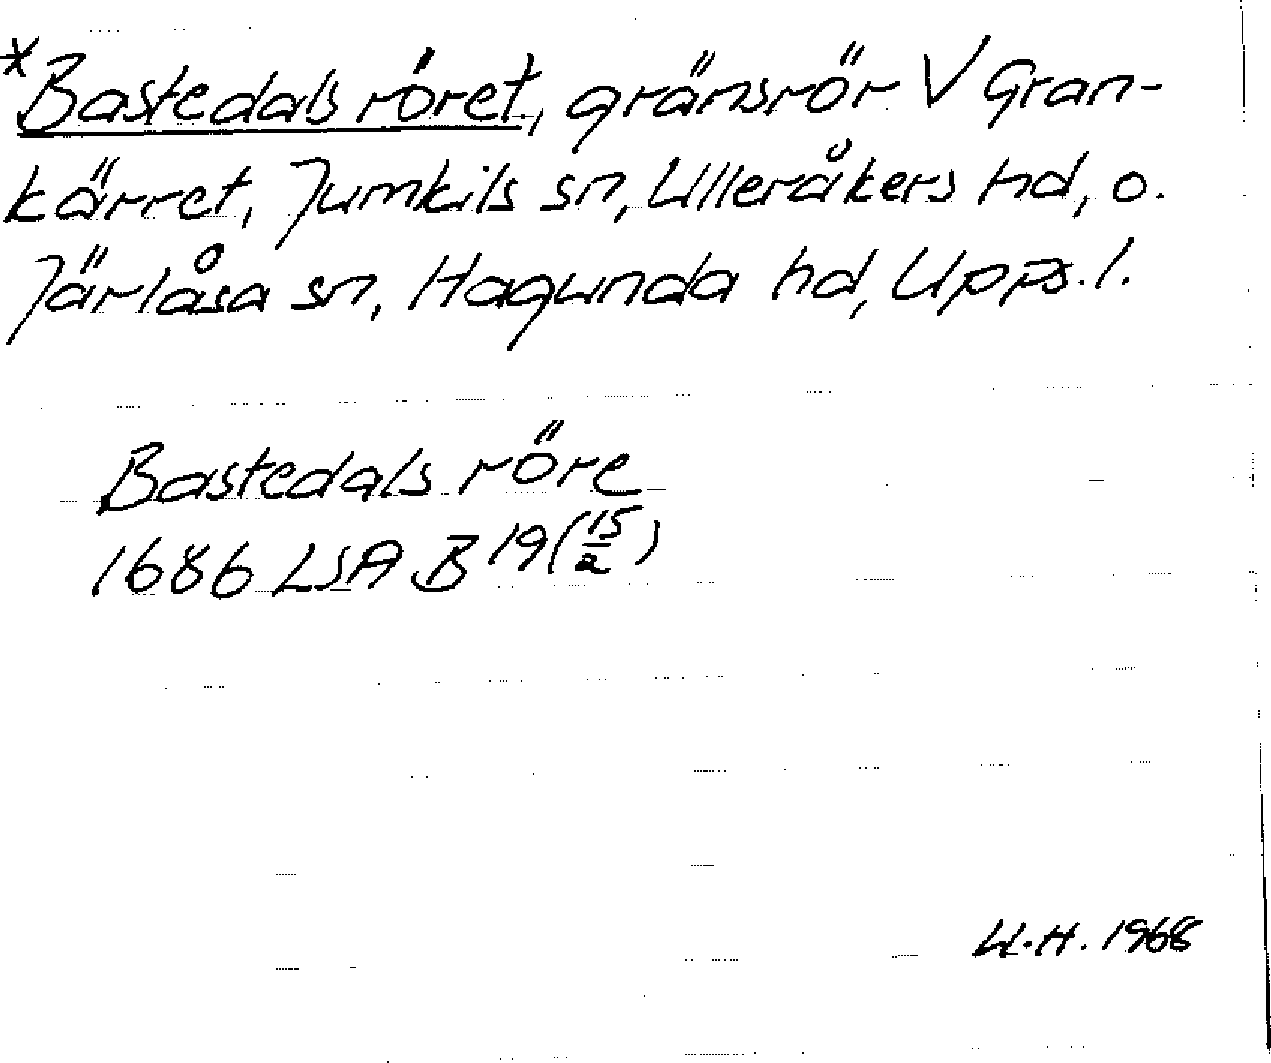 *Bastedals röret, gränsrör V Gran-
kärret, Jumkils sn, Ulleråkers hd, o.
Järlåsa sn, Hagunda hd, Upps. l.
Bastedals röre
1686 LSA B 19 (15/2)
W.H. 1968